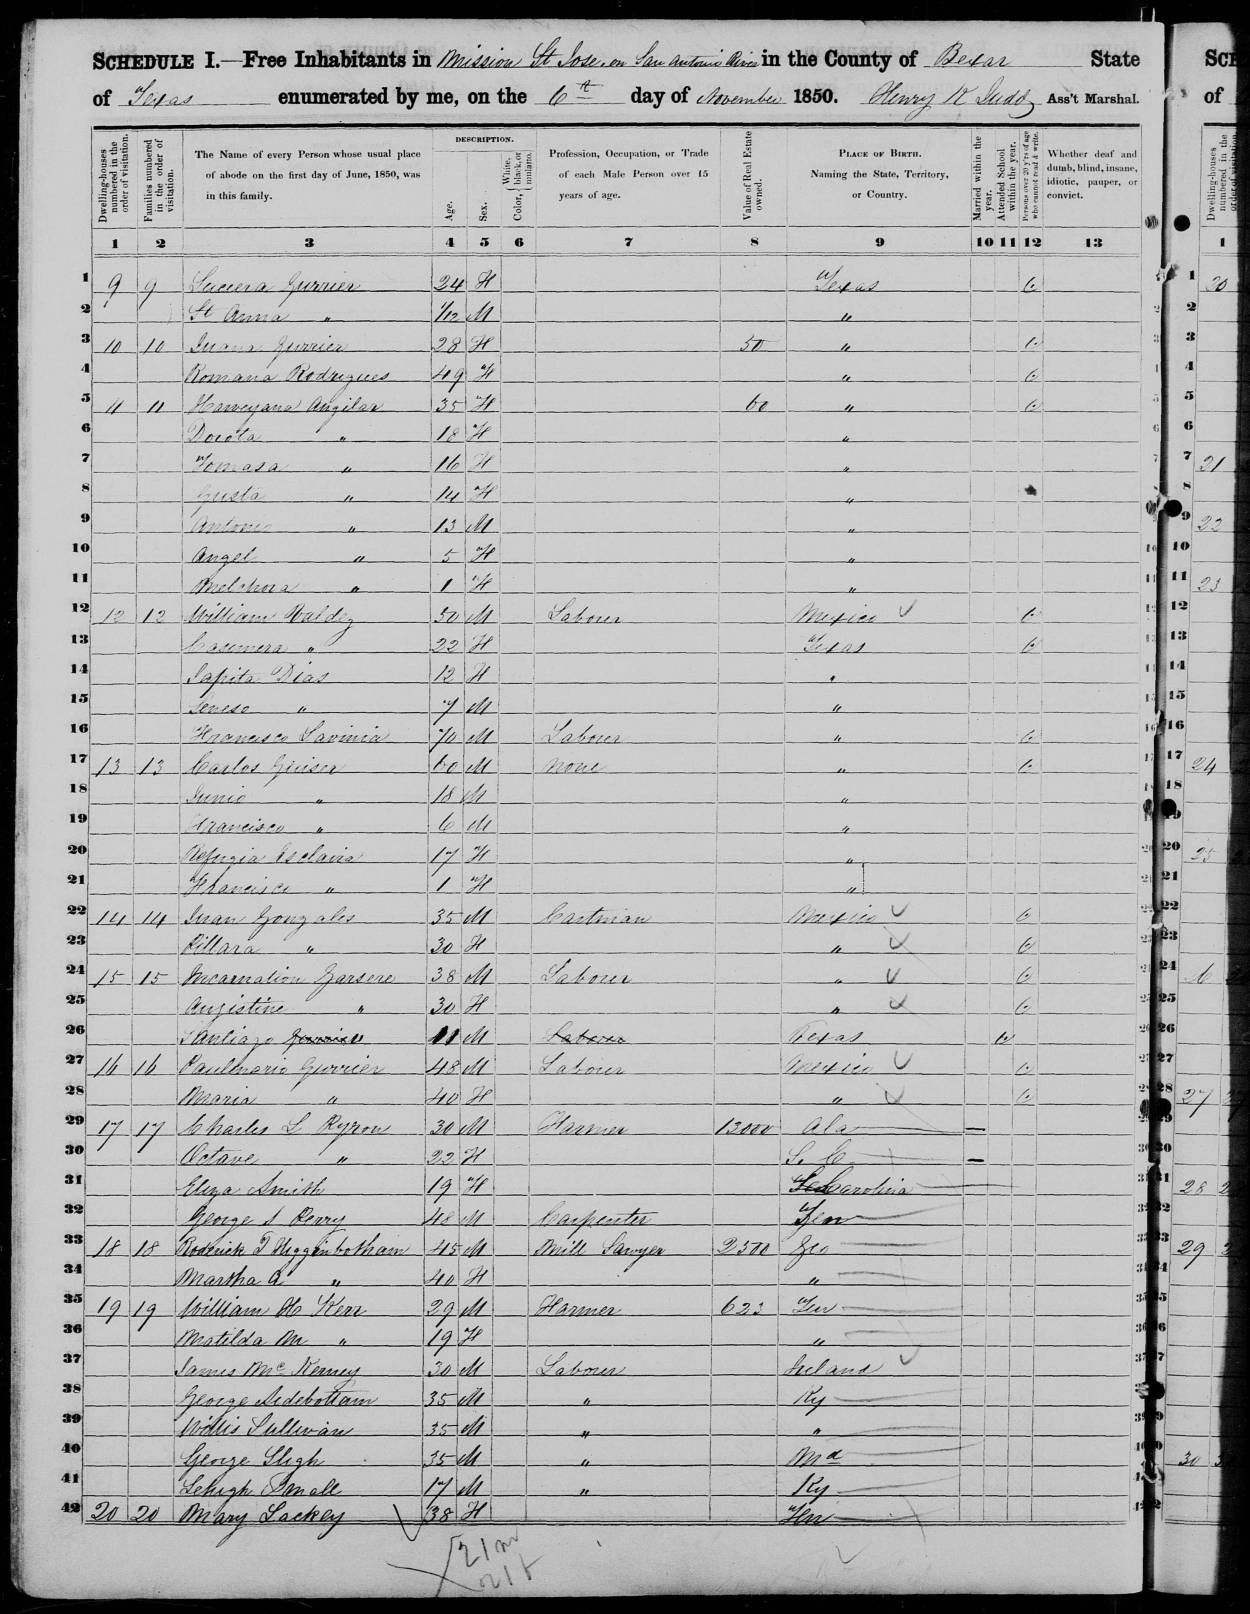 SCHEDULE I.—Free Inhabitants in Mission St Jose, on San Antonio River in the County of Bexar State
of Texas enumerated by me, on the 6th day of November 1850. Henry K Judd, Ass't Marshal.
Dwelling-houses numbered in the order of visitation.
Families numbered in the order of visitation.
The Name of every Person whose usual place of abode on the first day of June, 1850, was in this family.
DESCRIPTION.
Age.
Sex.
Color, White, black, or mulatto.
Profession, Occupation, or Trade of each Male Person over 15 years of age.
Value of Real Estate owned.
PLACE OF BIRTH. Naming the State, Territory, or Country.
Married within the year.
Attended School within the year.
Persons over 20 y'rs of age who cannot read & write.
Whether deaf and dumb, blind, insane, idiotic, pauper, or convict.
1 2 3 4 5 6 7 8 9 10 11 12 13
1 9 9 Gurrier 24 F Texas
2 St Anna " 1/12 M "
3 10 10 Juana Gurrier 28 F 50 "
4 Romana Rodrigues 49 F "
5 11 11 Angilar 35 F 60 "
6 Docota " 18 F "
7 Tomasa " 16 F "
8 Gusta " 14 F "
9 Antonio " 13 M "
10 Angel " 5 F "
11 Melchora " 1 F "
12 12 12 William Valdez 50 M Labourer Mexico
13 Casimera " 22 F Texas
14 Sapita Dias 12 F "
15 " 7 M "
16 Francisco Savinia 70 M Labourer "
17 13 13 Carlos 60 M None "
18 Junio " 18 M "
19 Francisco " 6 M "
20 Refugia Esclavia 17 F "
21 Francisco " 1 F "
22 14 14 Juan Gonzales 35 M Cartman Mexico
23 Pillara " 30 F "
24 15 15 Incarnation Garsere 38 M Labourer "
25 Augistine " 30 F "
26 Santiago 11 M Labourer Texas
27 16 16 Paulinario Gurrier 48 M Labourer Mexico
28 Maria " 40 F "
29 17 17 Charles L Pyron 30 M Farmer 13000 Ala
30 Octave " 22 F S. C
31 Eliza Smith 19 F Carolina
32 George S Perry 48 M Carpenter Ten
33 18 18 Roderick T Higginbotham 45 M Mill Sawyer 2500 Geo
34 Martha A " 40 F "
35 19 19 William H Kerr 29 M Farmer 623 Ten
36 Matilda M " 19 F "
37 James McKerney 30 M Labourer Ireland
38 George Sidebottam 35 M " Ky
39 Willis Sullivan 35 M " "
40 George Sligh 35 M " Md
41 Lehigh Small 17 M " Ky
42 20 20 Mary Lackey 38 F Ten
21 m
21 f
SCH
of
1
1 20
7 21
9 22
11 23
17 24
20 25
28 27
31 28
33 29
40 30